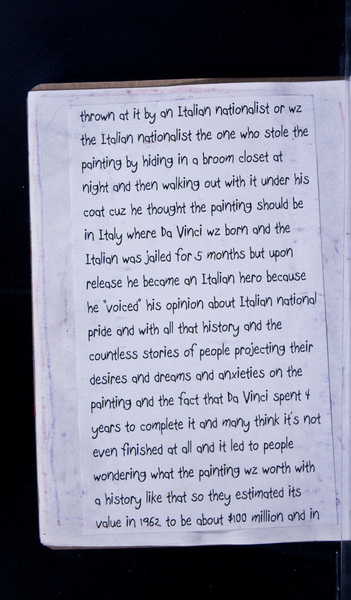 thrown at it by an Italian nationalist or wz
the Italian nationalist the one who stole the
painting by hiding in a broom closet at
night and then walking out with it under his
coat cuz he thought the painting should be
in Italy where Da Vinci wz born and the
Italian was jailed for 5 months but upon
release he became an Italian hero because
he "voiced" his opinion about Italian national
pride and with all that history and the
countless stories of people projecting their
desires and dreams and anxieties on the
painting and the fact that Da Vinci spent 4
years to complete it and many think it's not
even finished at all and it led to people
wondering what the painting wz worth with
a history like that so they estimated its
value in 1962 to be about $100 million and in